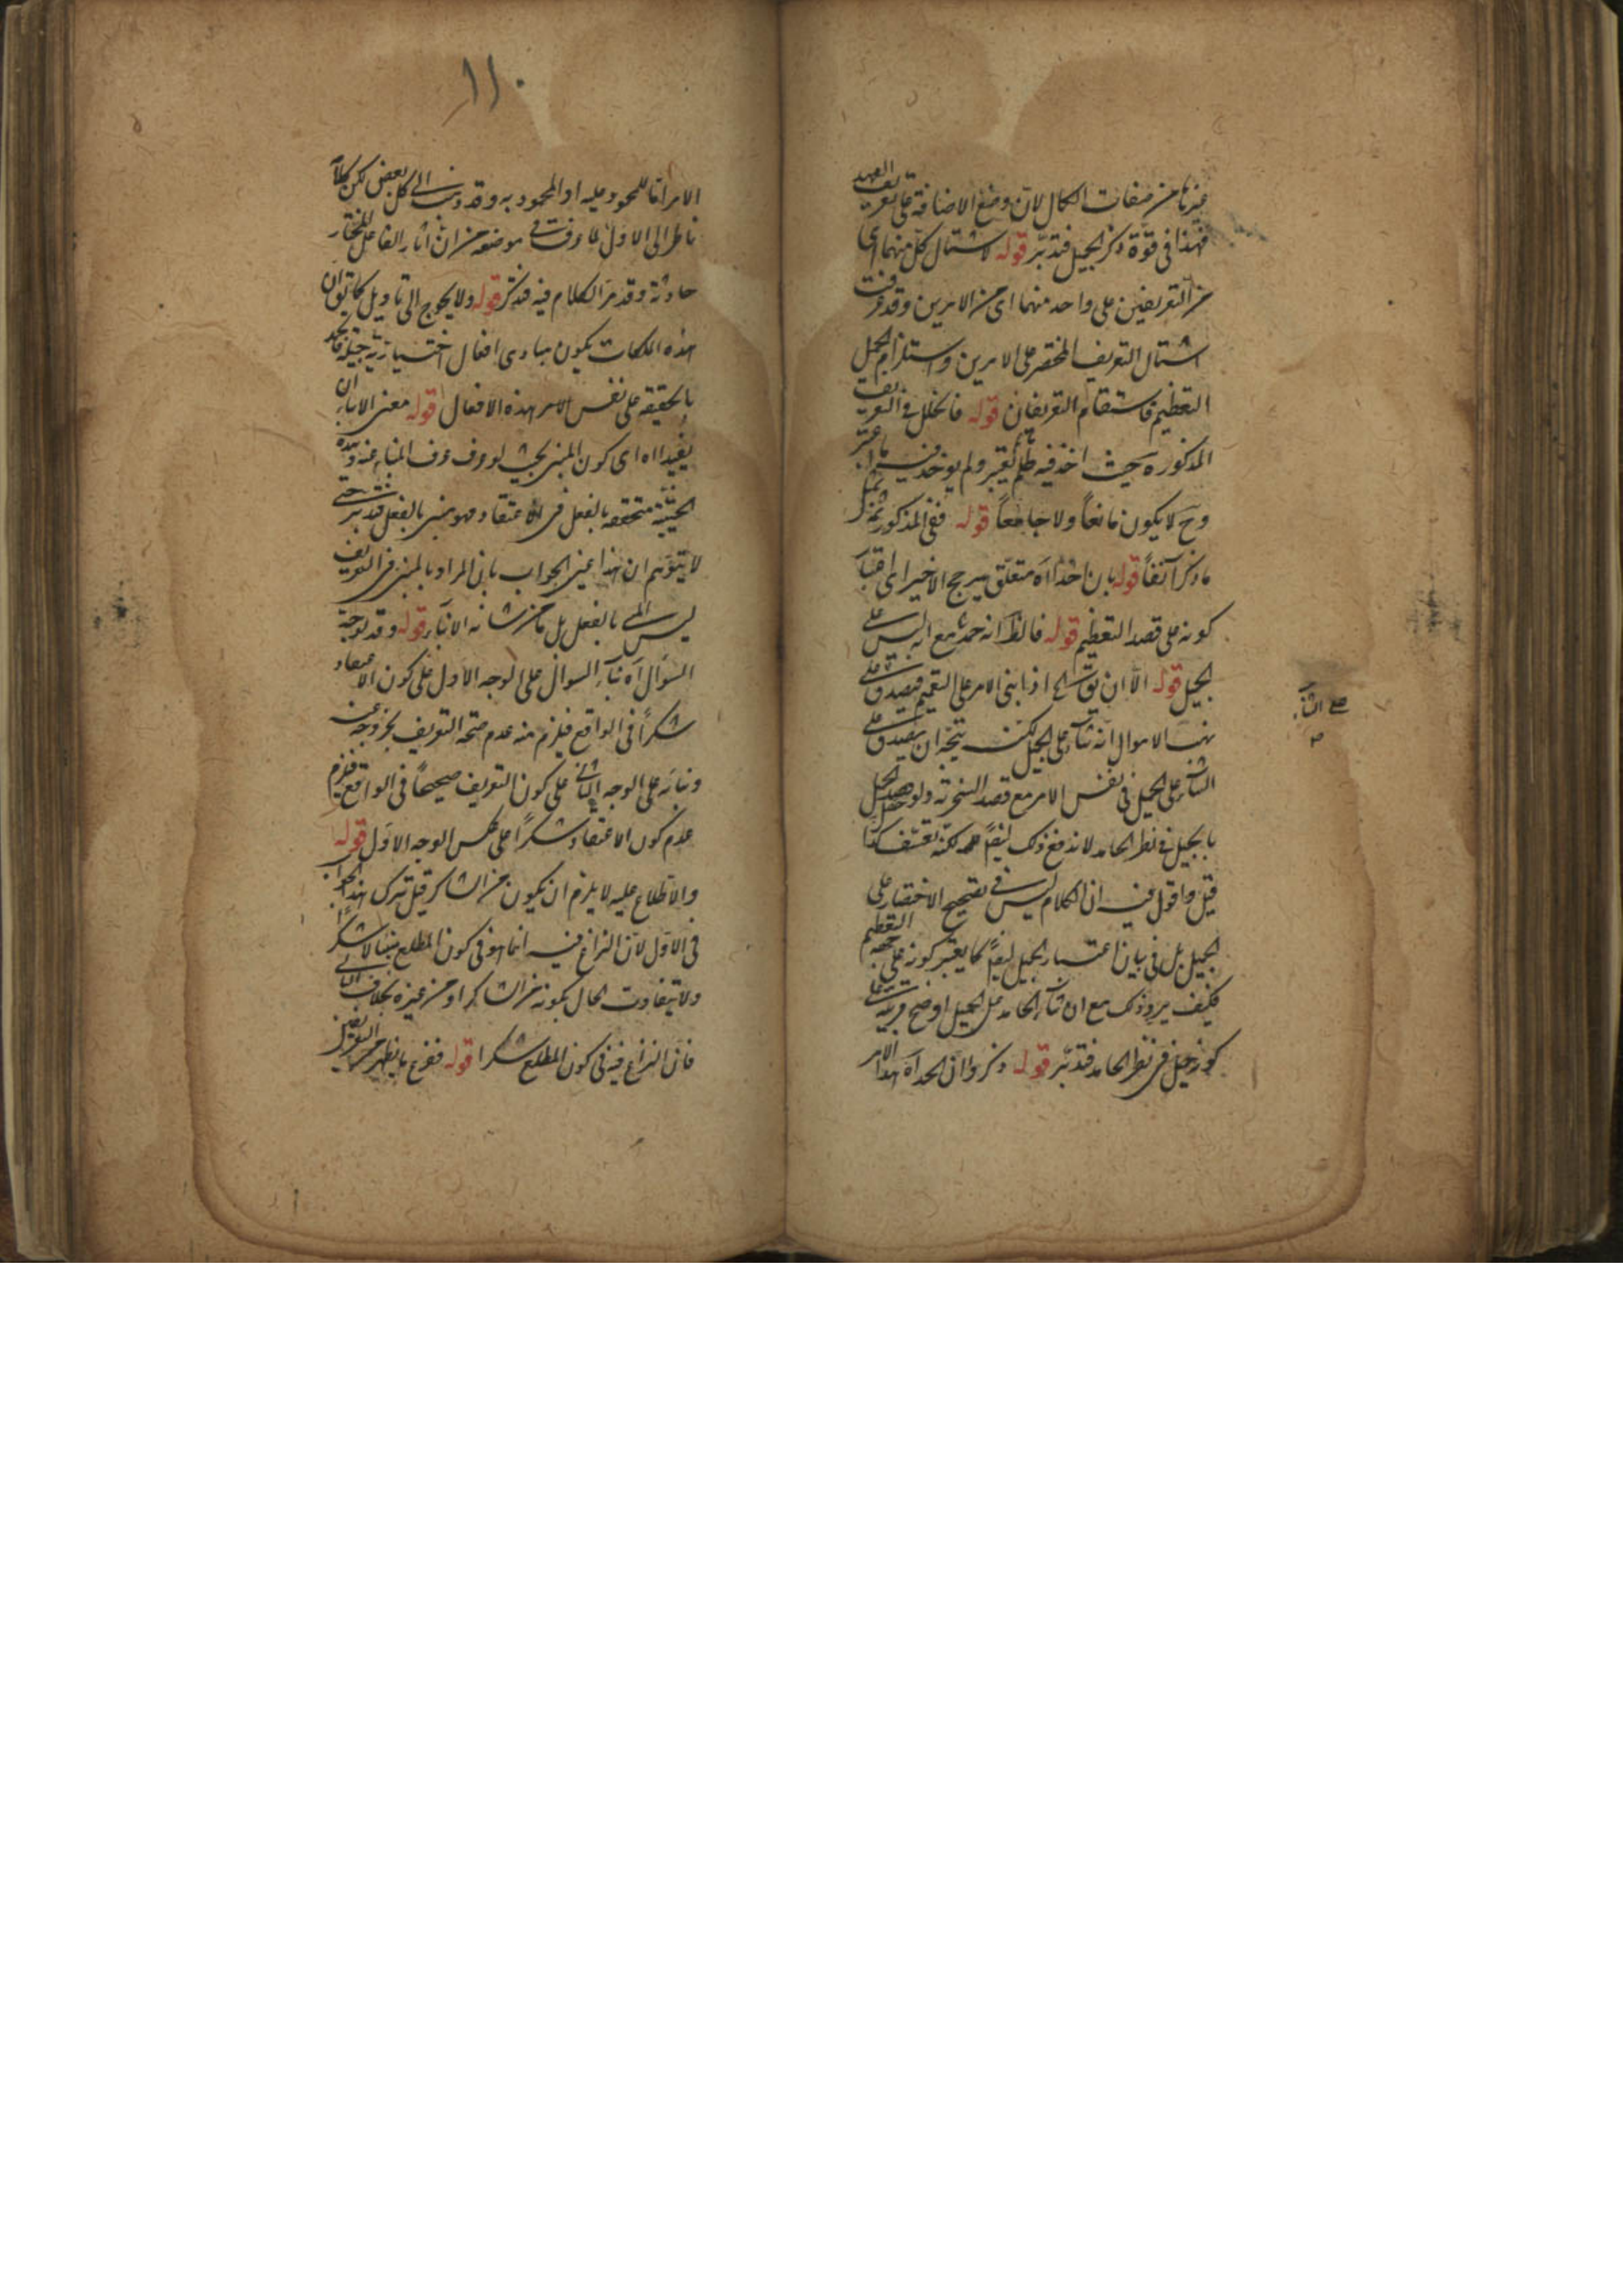 غيرنا من صفات الكمال لان وضع الاضافة على تعريف العهد
فهذا في قوة ذكر الجميل فتدبر قوله لاشتمال كل منهما اى
من التعريفين على واحد منهما اى من الامرين وقد عرفت
اشتمال التعريف المختصر على الامرين واستلزام الجميل
التعظيم فاستقام التعريفان قوله فالخلل في التعريف
المذكورة حيث اخذ فيه ما لم يعتبر ولم يوخذ فيه ما اعتبر
وح لا يكون مانعاً ولا جامعاً قوله ففي المذكور
ما ذكر آنفاً قوله بان اخذ اه متعلق بيرجح الاخير اى
كونه على قصد التعظيم قوله فالظ انه حمد مع انه ليس على
الجميل قوله الا ان يق الخ اذا بنى الامر على التعميم فيصدق على
نهب الاموال انه ثناء على الجميل لكنه يتجه ان يصدق على
الثناء على الجميل في نفس الامر مع قصد السخرية ولو
بالجميل في نظر الحامد لاندفع ذلك ايضاً لكنه تعسف كذا
قيل واقول فيه ان الكلام ليس في تصحيح الاختصار على
الجميل بل في بيان اعتبار الجميل ايضاً كما يعتبر كونه على جهة التعظيم
فكيف يرد ذلك مع ان ثناء الحامد على الجميل اوضح قرينة على
كونه جميل في نظر الحامد فتدبر قوله ذكروا ان الحمد اه هذا الامر
على الثناء
١١٠
الامر اما للمحمود عليه او المحمود به وقد الى كل بعض لكن
ناظر الى الاول لما عرفت في موضعه من ان اثار الفاعل المختار
حادثة وقد مر الكلام فيه فتذكر قوله ولا يحوج الى تاويل كما يق ان
هذه الملكات يكون مبادى افعال اختيارية جميلة فالحمد
بالحقيقة على نفس الامر هذه الافعال قوله معنى الانباء ان
يفيد اه اى كون المنبئ بحيث لو عرف عرف المنبا عنه وهذه
الحيثية متحققة بالفعل في الاعتقاد فهو منبئ بالفعل فتدبر حتى
لا يتوهم ان هذا عين الجواب بان المراد بالمنبئ في التعريف
ليس المنبئ بالفعل بل ما من شانه الانباء قوله وقد يوجه
السؤال اه بناء السوال على الوجه الاول على كون الاعتقاد
شكراً في الواقع فيلزم منه عدم صحة التعريف بخروجه عنه
وبناءه على الوجه الثاني على كون التعريف صحيحاً في الواقع فيلزم
عدم كون الاعتقاد شكراً على عكس الوجه الاول قوله
والاطلاع عليه لا يلزم ان يكون من الشاكر قيل ترك هذا الجواب
في الاول لان النزاع فيه انما هو في كون المطلع منبئا لا شكراً
ولا يتفاوت الحال بكونه من الشاكر او من غيره بخلاف الثاني
فان النزاع فيه في كون المطلع شكرا قوله ففرع ما يظهر من التعريفين